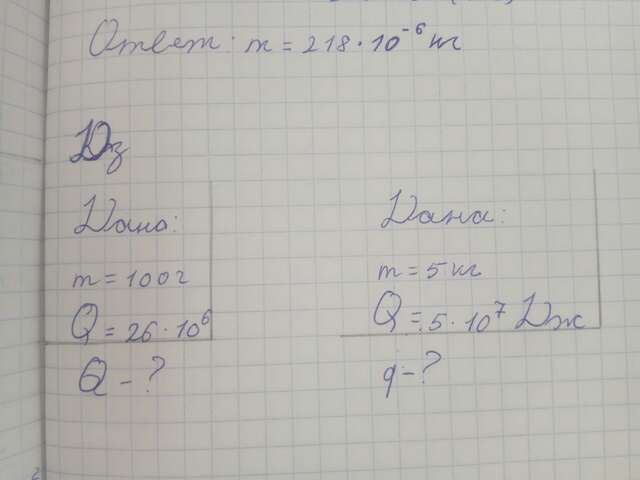 Ответ: m = 218 · 10⁻⁶ кг
Дз
Дано:
m = 100 г
Q = 26 · 10⁶
Q - ?
Дана:
m = 5 кг
Q = 5 · 10⁷ Дж
q - ?